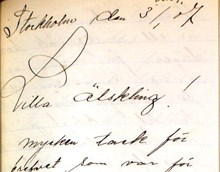 Stockholm den 3/1 07
Lilla älskling!
mycken tack för
brefvet som var för